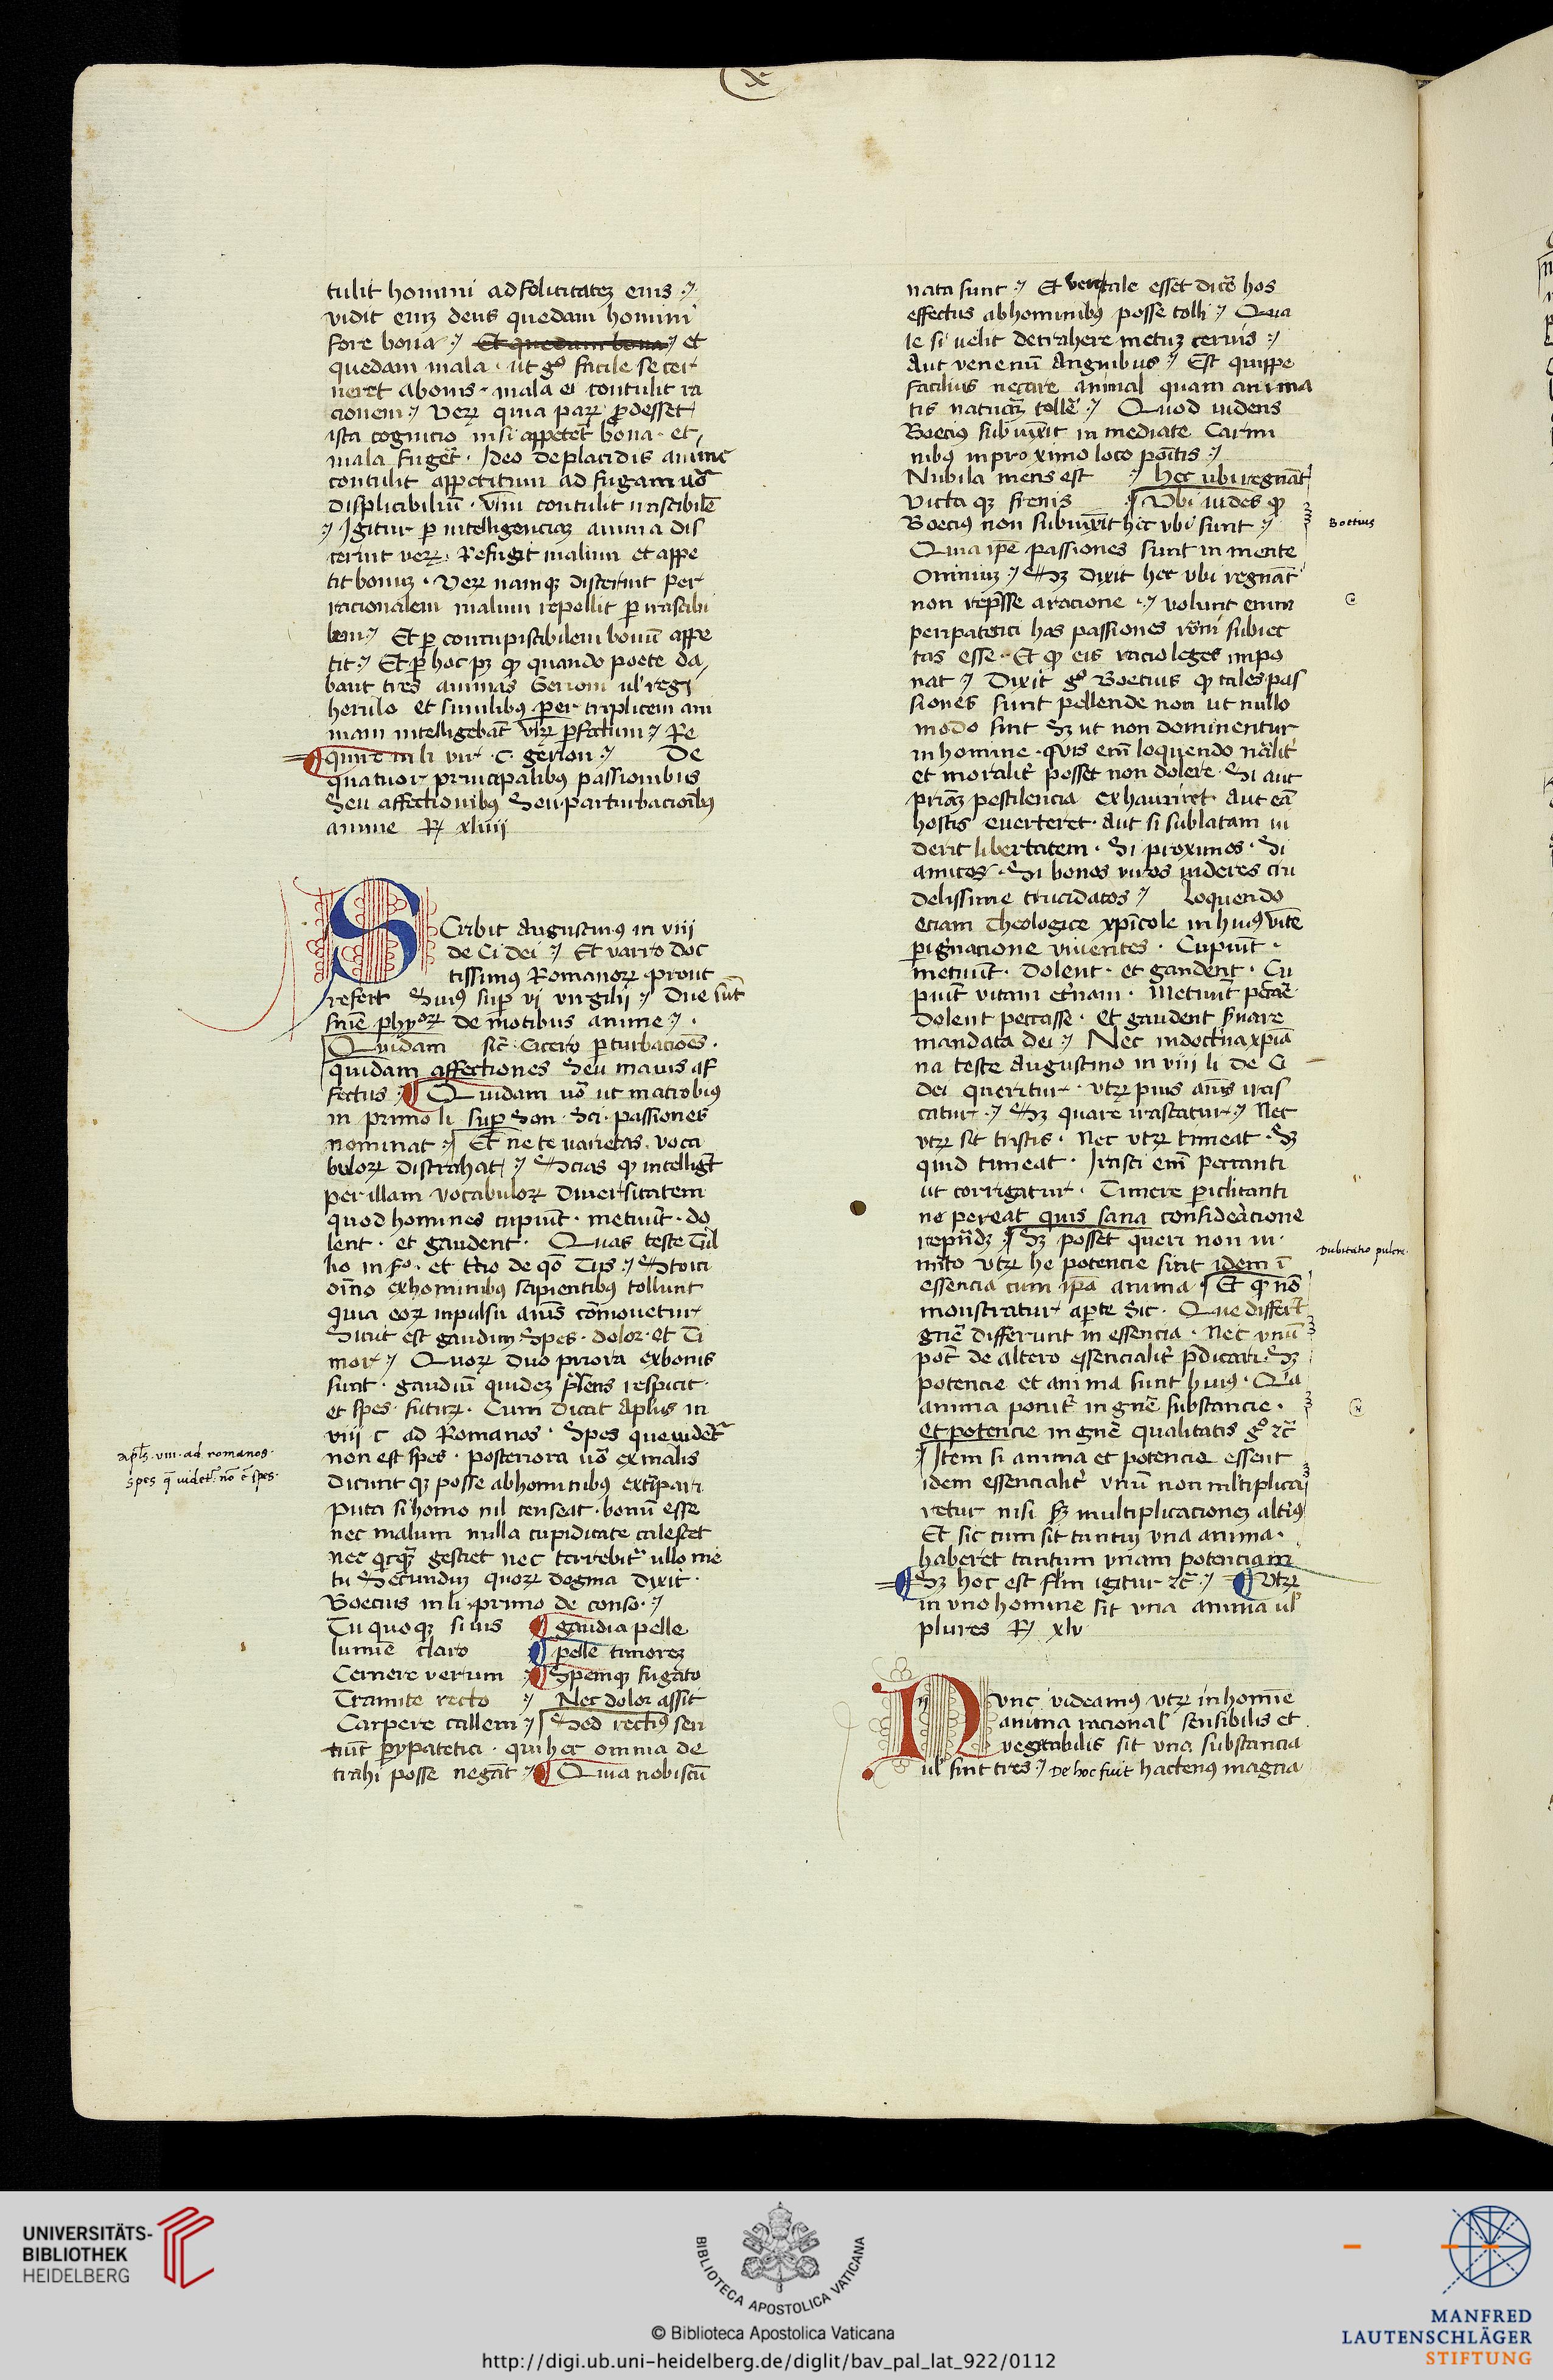 X
tulit homini ad felicitatez eius
vidit eniz deus quedam homini
fore bona Et quedam bona et
quedam mala · ut g° facile secer
neret a bonis · mala ei contulit ra
cionem Verꝝ quia parꝝ ꝓdesset
ista cognicio nisi appetet bona · et
mala fuget̄ · Ideo de placidis anime
contulit appetitum ad fugam uo᷑
displicibiliū · vim contulit irascibilē
Igitur ꝑ intelligenciaz anima dis
cernit verꝝ · Refugit malum et appe
tit bonuz · Verꝝ namqȝ discernit per
racionalem malum repellit ꝑ irascibi
lem Et ꝑ concupiscibilem bonū appe
tit Et ꝑ hoc pȝ ꝙ quando poete da
bant tres animas Gerioni ul' regi
herulo et similibꝯ per triplicem ani
mam intelligebāt virꝝ ꝑfectum Re
quire in li vir · c · gerion De
quatuor principalibꝯ passionibus
Seu affectionibꝯ Seu parturbacionibꝯ
anime R/ xliiii
SCribit Augustinꝯ in viii
de Ci dei Et varro doc
tissimus Romanorꝝ prout
refert Suiꝯ sup vj virgilij Due sūt
snīe phyorꝝ de motibus anime
Quidam sic̄ Cicero ꝑturbacioēs ·
quidam affectiones Seu mauis af
fectus Quidam uo᷑ ut macrobiꝯ
in primo li sup Son · Sci · passiones
nominat Et ne te varietas voca
bulorꝝ distrahat Scias ꝙ intelligt̄
per illam vocabulorꝝ diuersitatem
quod homines cupiūt · metuūt · do
lent · et gaudent · Quas teste Tul
lio in f° · et tt̄io de qō Tus Stoici
oīno ex hominibus sapientibus tollunt
quia eorꝝ inpulsu aīus cōmouetur
Sicut est gaudiuȝ Spes · dolor · et Ti
mor Quorꝝ duo priora ex bonis
sunt · gaudiū quidez pn̄s respicit
et spes · futurꝝ · Cum dicat aplus in
viii c ad Romanos · Spes que videt᷑
non est spes · posteriora uo᷑ ex malis
dicunt qȝ posse ab hominibus extirpari
puta si homo nil censeat · bonū esse
nec malum nulla cupiditate calescet
nec qicqȝ gesciet nec terrebit᷑ ullo me
tu Secunduȝ quorꝝ dogma dixit ·
Boecius in li primo de conso ·
Tu quoqȝ si uis gaudia pelle
lumīe claro pelle timorez
Cernere verum Spemqȝ fugato
Tramite recto Nec dolor assit
Carpere callem Sed rectiꝯ sen
tiūt ꝑypatetici · qui hec omnia de
trahi posse negāt Quia nobiscū
aplꝯ · viii · ad romanos ·
spes q̄ uidet᷑ · nō ē spes ·
nata sunt Et tale esset dic̄e hos
effectus ab hominibꝯ posse tolli Qua
le si uelit detrahere metuȝ ceruis
Aut venenū Anguibus Est quippe
facilius necare animal quam anima
tis naturaȝ tolle᷑ Quod uidens
Boecius subiuxit in mediate Carmi
nibꝯ in proximo loco pōitis
Nubila mens est hec ubi regnāt
Victa qȝ frenis Vbi uides ꝙ
Boecius non subiuxit hec vbi sunt
Quia ip̄e passiones sunt in mente
Ominiuȝ Sȝ dixit hec vbi regnāt
non rep̄sse a racione volunt enim
peripatetici has passiones rōni subiec
tas esse · Et ꝙ eis racio leges impo
nat Dixit g° Boecius ꝙ tales pas
siones sunt pellende non ut nullo
modo sint Sȝ ut non dominentur
in homine · quis enī loquendo nāliꞇ
et moraliꞇ posset non dolere Si aut
priaȝ pestilencia exhauriret Aut eā
hostis euerteret · Aut si sublatam ui
derit libertatem · Si proximos · Si
amicos · Si bonos viros uideres cru
delissime trucidatos Loquendo
etiam Theologice xp̄icole in huiꝯ vite
ꝑigrnacione viuentes · Cupiūt ·
metuūt · Dolent · et gaudent · Cu
piūt vitam et̄nam · Metuūt pecca᷑e
Dolent peccasse · et gaudent s̄uare
mandata dei Nec in doctn̄a xp̄ia
na teste Augustino in viii li de Ci
dei queritur · vtrꝝ pius aīus iras
catur Sȝ quare irascatur Nec
vtrꝝ sit tristis · Nec vtrꝝ timeat · Sȝ
quid timeat · Irasci enī peccanti
ut corrigatur · Timere ꝑiclitanti
ne pereat quis sana consideracione
rep̄hdȝ Sȝ posset queri non in
mito vtrꝝ he potencie sint idem ī
essencia cum ip̄a anima Et ꝙ nō
monstratur aꝑte Sic · Que differt̄
gn̄e differunt in essencia · Nec vnū
pot̄ de altero essencialiꞇ p̄dicari Sȝ
potencie et anima sunt huiꝯ · Qia
anima ponit᷑ in gn̄e substancie ·
et potencie in gn̄e qualitatis g° ꝛc̄
Item si anima et potencie essent
idem essencialiꞇ vnū non mltiplica
retur nisi sȝ multiplicacionez altiꝯ
Et sic cum sit tantuȝ vna anima ·
haberet tantum vnam potenciam
Sȝ hoc est flm igitur ꝛc̄ Vtrꝝ
in vno homine sit vna anima ul'
plures R/ xlv
NVnc videamꝯ vtrꝝ in homīe
anima racional' sensibilis et
vegetabilis sit vna substancia
ul' sint tres De hoc fuit hactenꝯ magna
Boetius
Dubitatio pulcra
UNIVERSITÄTS-
BIBLIOTHEK
HEIDELBERG
BIBLIOTECA APOSTOLICA VATICANA
© Biblioteca Apostolica Vaticana
http://digi.ub.uni-heidelberg.de/diglit/bav_pal_lat_922/0112
MANFRED
LAUTENSCHLÄGER
STIFTUNG